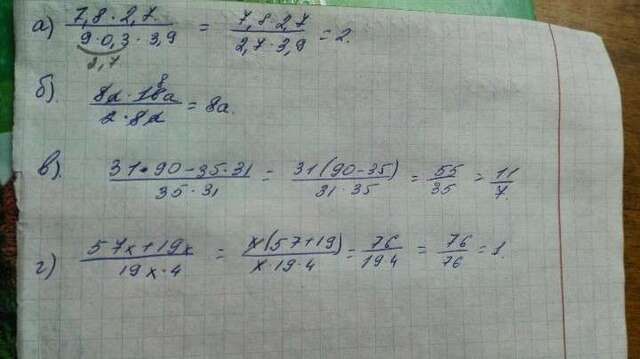 а) 7,8 · 2,7 / 9 · 0,3 · 3,9 = 7,8 · 2,7 / 2,7 · 3,9 = 2.
2,7
б). 8d · 16a / 2 · 8d = 8a.
8
в). 31 · 90 - 35 · 31 / 35 · 31 = 31(90-35) / 31 · 35 = 55 / 35 = 11 / 7.
г) 57x+19x / 19x · 4 = x(57+19) / x · 19 · 4 = 76 / 19 4 = 76 / 76 = 1.